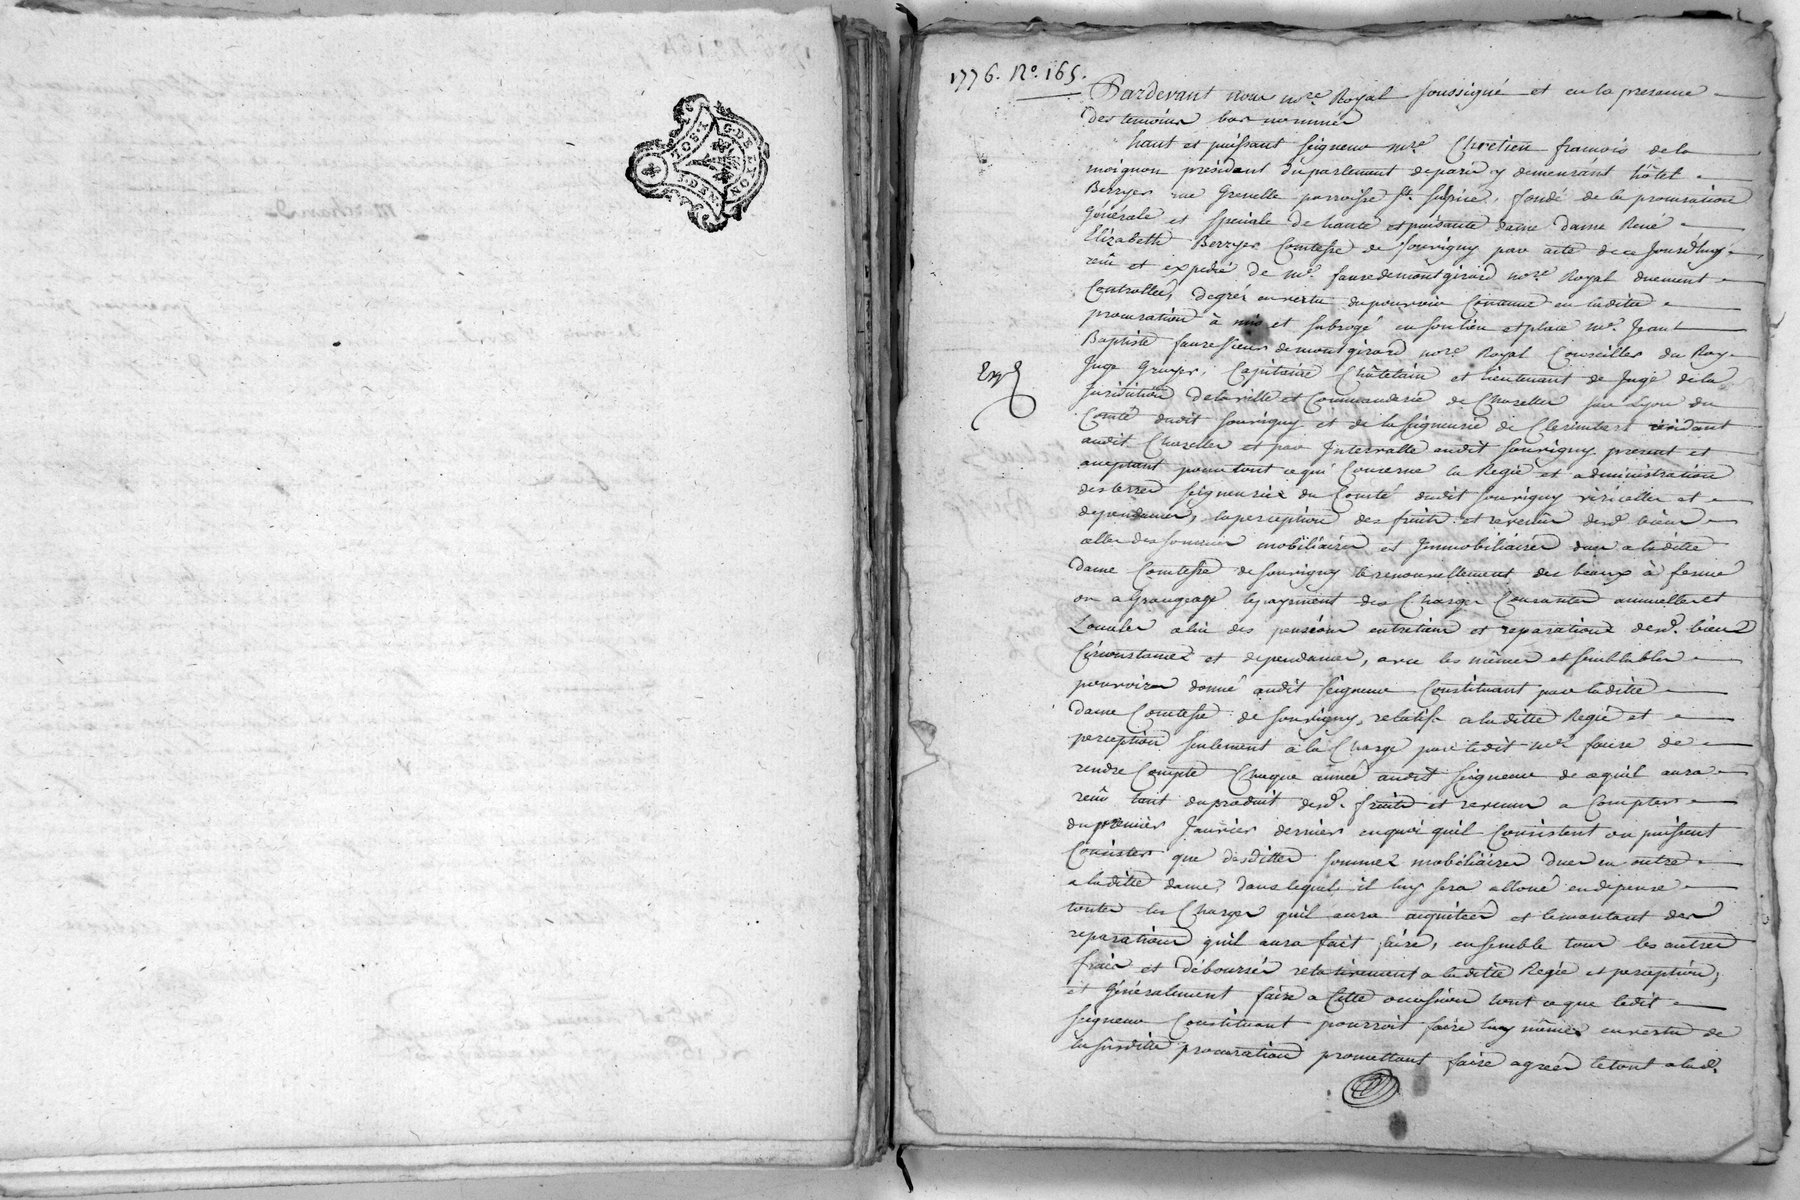 G. DE LYON
1776. N.º 165.
Pardevant nous no.re Royal soussigné et en la presence
des temoins bas nommés
haut et puissant seigneur m.re Chretien francois de la
moignon président du parlement de paris y demeurant hôtel
Berryer rue Grenelle parroisse S.t Sulpice, fondé de la procuration
Générale et speciale de haute et puissante dame dame René
Elizabeth Berryer Comtesse de Souvigny par acte de ce Jourd'huy
reçû et expedié de m.e faure de montgirard no.re Royal duement
Controllée, degrés en vertu du pouvoir Contenu en ladite
procuration à mis et subrogé en son lieu et place m.e Jean
Baptiste faure sieur de montgirard no.re Royal Conseiller du Roy
Juge Gruyer, Capitaine Châtelain et lieutenant de Juge de la
Juridiction de la ville et Commanderie de Chazelles sur Lyon du
Comté dudit Souvigny et de la seigneurie de Clerimbert résidant
audit Chazelles et par Intervalle audit Souvigny present et
acceptant pour tout ce qui Concerne la Regie et administration
des terres seigneuries du Comté dudit Souvigny viricelles et
dependances, la perception des fruits et revenûs desd. biens
celles des sommes mobiliaires et Immobiliaires dues a ladite
Dame Comtesse de Souvigny le renouvellement des beaux à ferme
ou a Grangeage le payement des Charges Courantes annuelles et
Locales celui des pensions entretiens et reparations desd. biens
Circonstances et dependances, avec les mêmes et semblables
pouvoirs donné audit seigneur Constituant par ladite
Dame Comtesse de Souvigny, relatifs a ladite Regie et
perception seulement à la Charge par ledit m.e faure de
rendre Compte Chaque année audit seigneur de ce qu'il aura
reçû tant du produit desd. fruits et revenus a Compter
du premier Janvier dernier en quoi qu'il Consistent ou puissent
Consister que desdittes sommes mobiliaires dues en outre
a ladite dame, dans lequel il luy sera alloué en depense
toutes les Charges quil aura acquitées et le montant des
reparations qu'il aura fait faire, ensemble tous les autres
frais et déboursés relativement a ladite Regie et perception,
et Généralement faire a Cette occasion tout ce que ledit
seigneur Constituant pourroit faire luy même en vertu de
la susditte procuration promettant faire agréer le tout a lad.